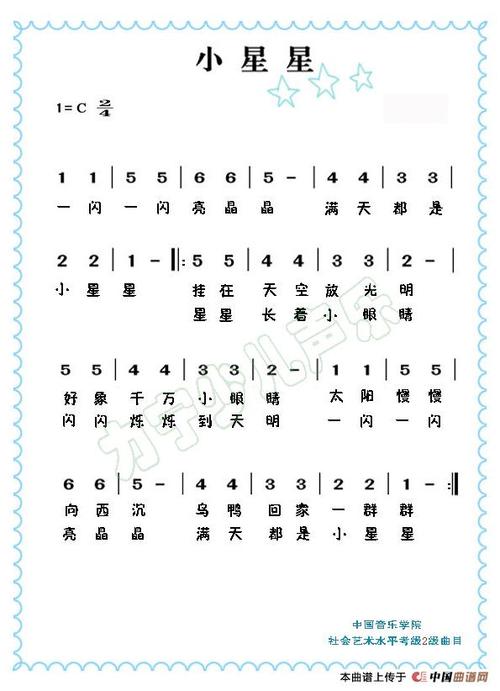 小星星
1=C 2/4
1 1 | 5 5 | 6 6 | 5 - | 4 4 | 3 3 |
一闪一闪亮晶晶 满天都是
2 2 | 1 - ‖: 5 5 | 4 4 | 3 3 | 2 - |
小星星 挂在天空放光明
星星长着小眼睛
5 5 | 4 4 | 3 3 | 2 - | 1 1 | 5 5 |
好象千万小眼睛 太阳慢慢
闪闪烁烁到天明 一闪一闪
6 6 | 5 - | 4 4 | 3 3 | 2 2 | 1 - :‖
向西沉 乌鸭回家一群群
亮晶晶 满天都是小星星
力宇少儿声乐
中国音乐学院
社会艺术水平考级2级曲目
本曲谱上传于 中国曲谱网